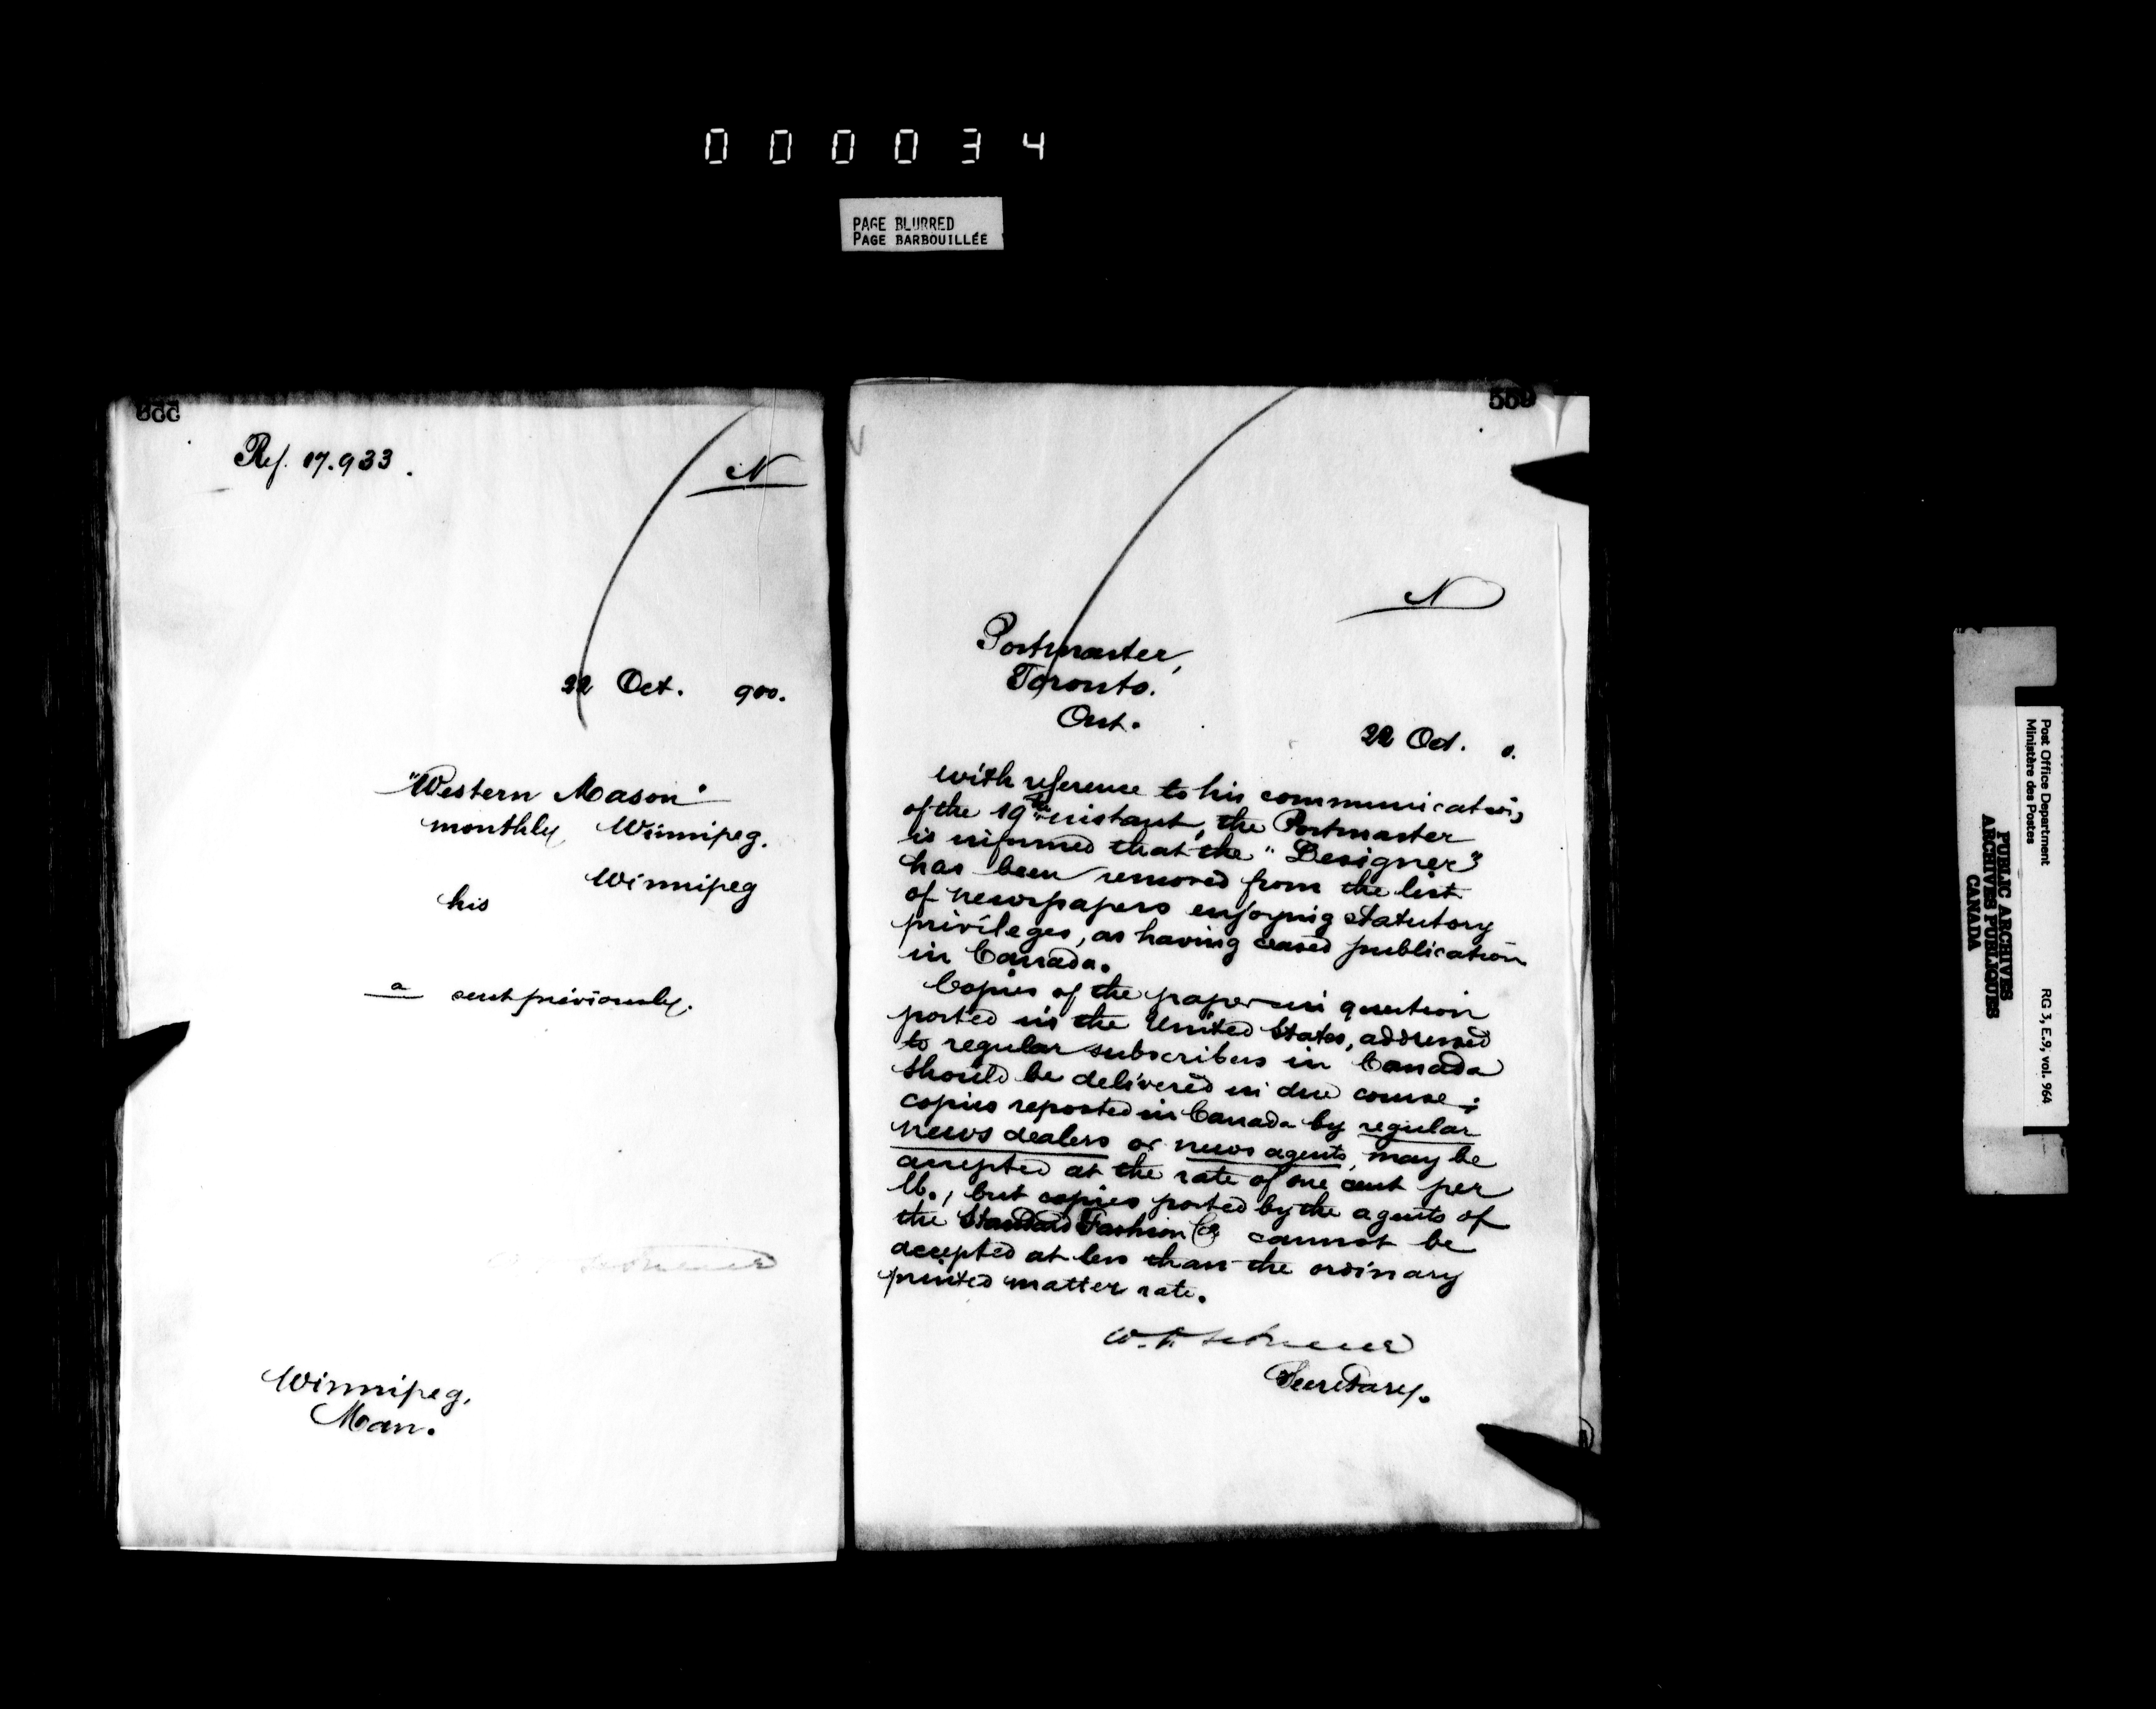 000034
PAGE BLURRED
PAGE BARBOUILLÉE
Ref. 17.933.
N
22 Oct. 900.
"Western Mason"
monthly Winnipeg.
Winnipeg
his
a sent previously.
Winnipeg,
Man.
559
N
Postmaster,
Toronto.
Ont.
22 Oct. 0.
with reference to his communication
of the 19th instant, the Postmaster
is informed that the "Designer"
has been removed from the list
of newspapers enjoying statutory
privileges, as having ceased publication
in Canada.
Copies of the paper in question
posted in the United States, addressed
to regular subscribers in Canada
should be delivered in due course;
copies reposted in Canada by regular
news dealers or news agents, may be
accepted at the rate of one cent per
lb., but copies posted by the agents of
the Standard Fashion Co cannot be
accepted at less than the ordinary
printed matter rate.
Secretary.
Post Office Department
Ministère des Postes
RG 3, E.9, vol. 964
PUBLIC ARCHIVES
ARCHIVES PUBLIQUES
CANADA